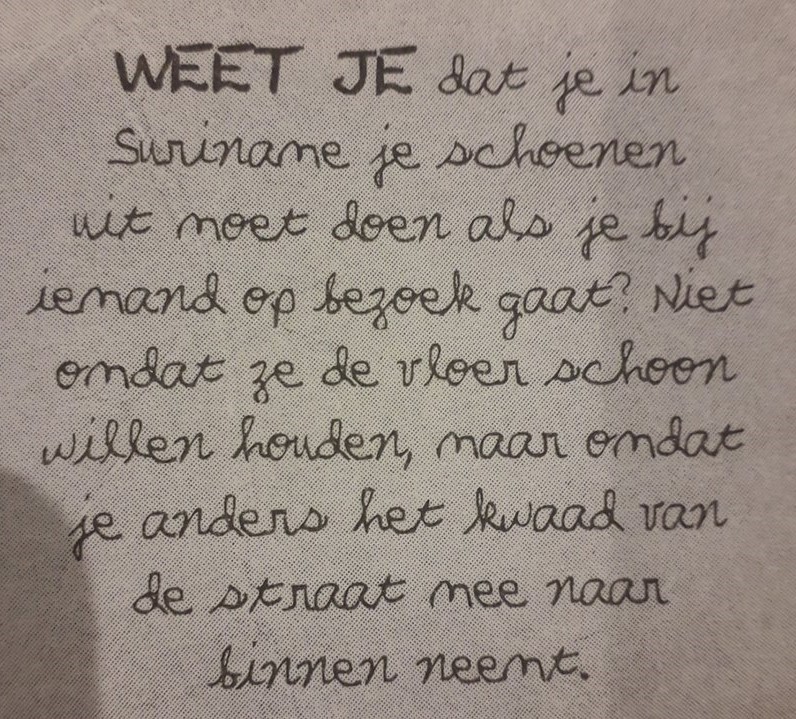 WEET JE dat je in
Suriname je schoenen
uit moet doen als je bij
iemand op bezoek gaat? Niet
omdat ze de vloer schoon
willen houden, maar omdat
je anders het kwaad van
de straat mee naar
binnen neemt.